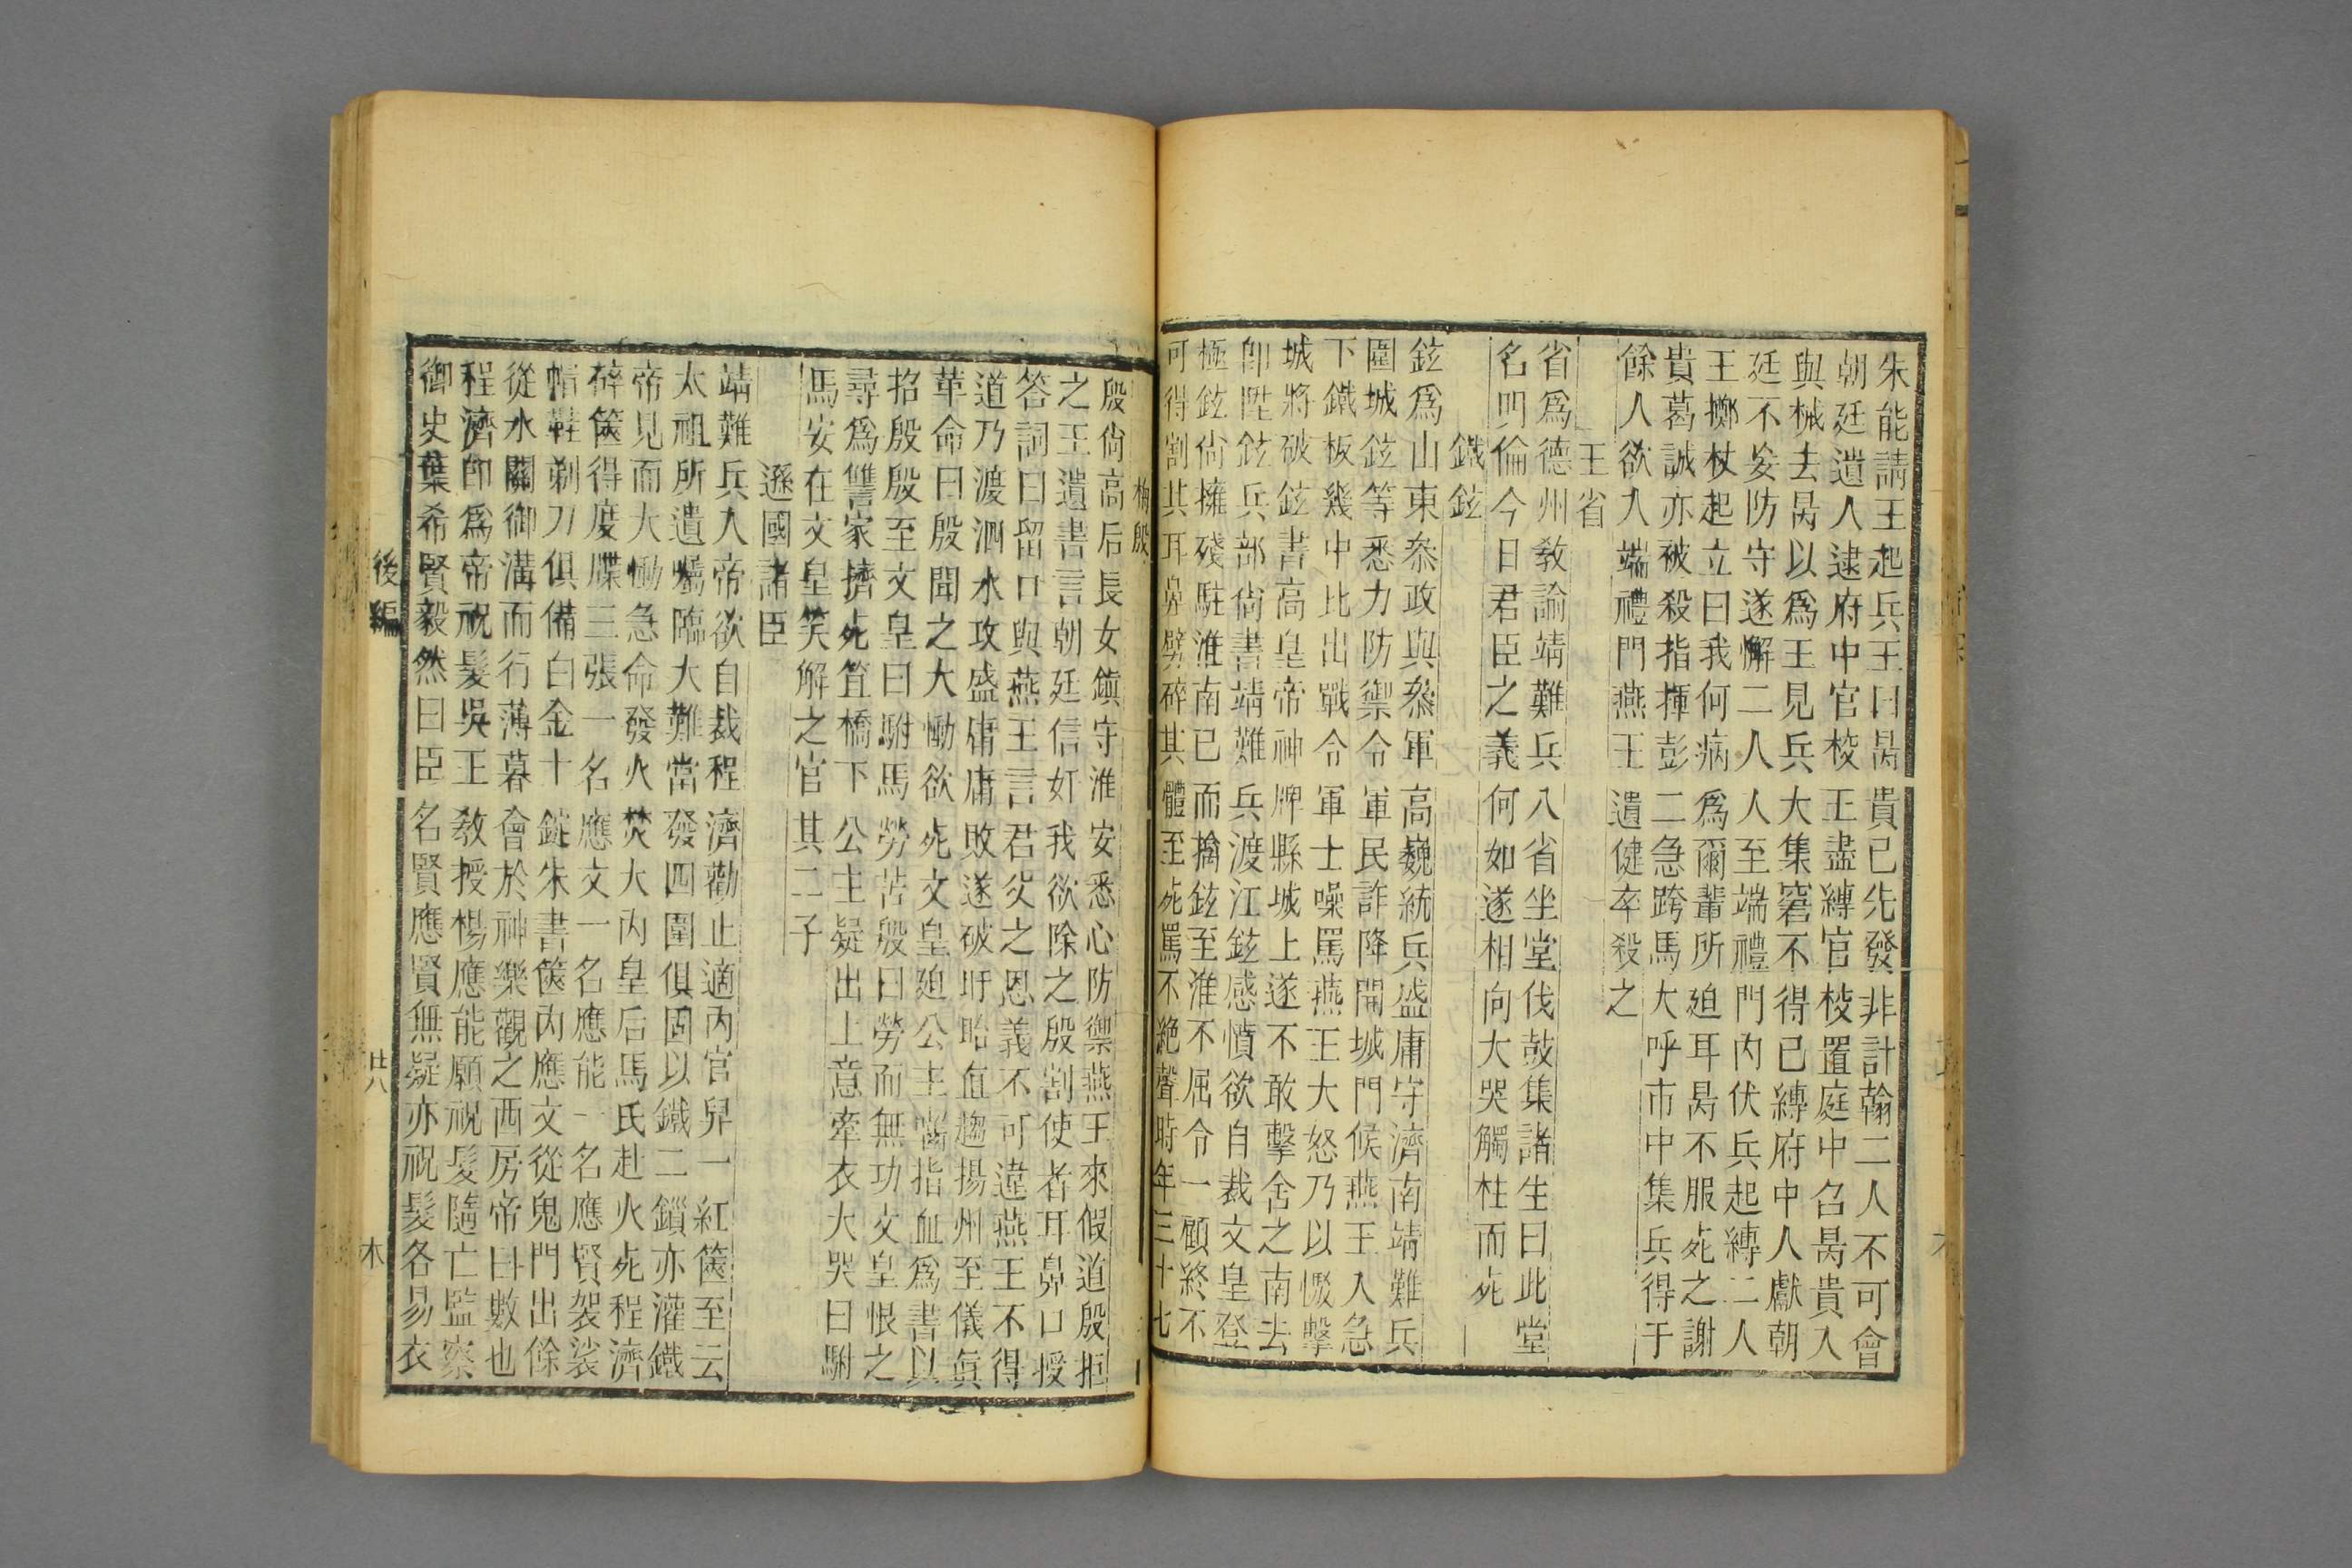 朱能請王起兵王曰昺貴已先發非計翰二人不可會
朝廷遣人逮府中官校王盡縛官校置庭中召昺貴入
與械去昺以爲王見兵大集窘不得已縛府中人獻朝
廷不妄防守遂懈二人人至端禮門内伏兵起縛二人
王擲杖起立曰我何病爲爾輩所廹耳昺不服死之謝
貴葛誠亦被殺指揮彭二急跨馬大呼市中集兵得于
餘人欲入端禮門燕王遣健卒殺之
王省
省爲德州教諭靖難兵入省坐堂伐鼓集諸生曰此堂
名明倫今日君臣之義何如遂相向大哭觸柱而死
鐵鉉
鉉爲山東叅政與叅軍高巍統兵盛庸守濟南靖難兵
圍城鉉等悉力防禦令軍民詐降開城門候燕王入急
下鐵板幾中比出戰令軍士噪罵燕王大怒乃以礮擊
城將破鉉書高皇帝神牌縣城上遂不敢擊舍之南去
卽陞鉉兵部尙書靖難兵渡江鉉感憤欲自裁文皇登
極鉉尙擁殘駐淮南已而擒鉉至淮不屈令一顧終不
可得割其耳鼻劈碎其體至死罵不絕聲時年三十七
梅殷
殷尙高后長女鎭守淮安悉心防禦燕王來假道殷拒
之王遺書言朝廷信奸我欲除之殷割使者耳鼻口授
答詞曰留口與燕王言君父之恩義不可違燕王不得
道乃渡泗水攻盛庸庸敗遂破盱眙直趨揚州至儀眞
革命曰殷聞之大慟欲死文皇廹公主嚙指血爲書以
招殷殷至文皇曰駙馬勞苦殷曰勞而無功文皇恨之
尋爲讐家擠死笪橋下公主疑出上意牽衣大哭曰駙
馬安在文皇笑解之官其二子
遜國諸臣
靖難兵入帝欲自裁程濟勸止適内官舁一紅篋至云
太祖所遺囑臨大難當發四圍俱固以鐵二鎖亦灌鐵
帝見而大慟急命發火焚大内皇后馬氏赴火死程濟
碎篋得度牒三張一名應文一名應能一名應賢袈裟
帽鞋剃刀俱備白金十錠朱書篋内應文從鬼門出餘
從水關御溝而行薄暮會於神樂觀之西房帝曰數也
程濟卽爲帝祝髮吳王教授楊應能願祝髮隨亡監察
御史葉希賢毅然曰臣名賢應賢無疑亦祝髮各易衣
後編
廿八
木